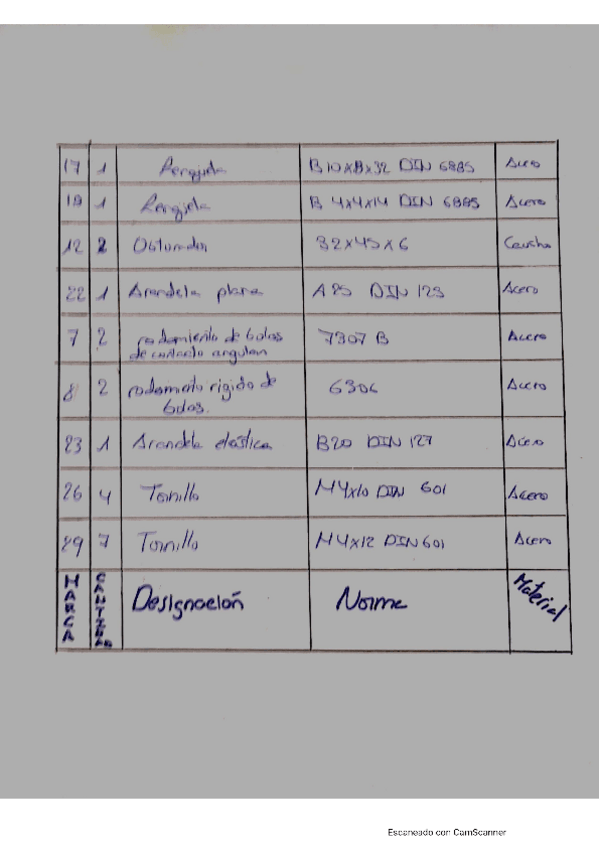 17 1 Lengüeta B 10x8x32 DIN 6885 Acero
19 1 Lengüeta B 4x4x14 DIN 6885 Acero
12 2 Obturador 32x45x6 Caucho
22 1 Arandela plana A 25 DIN 125 Acero
7 2 rodamiento de bolas de contacto angular 7307 B Acero
8 2 rodamiento rigido de bolas. 6306 Acero
23 1 Arandela elástica B20 DIN 127 Acero
26 4 Tornillo M4x10 DIN 601 Acero
29 7 Tornillo M4x12 DIN 601 Acero
MARCA CANTIDAD Designación Norma Material
Escaneado con CamScanner